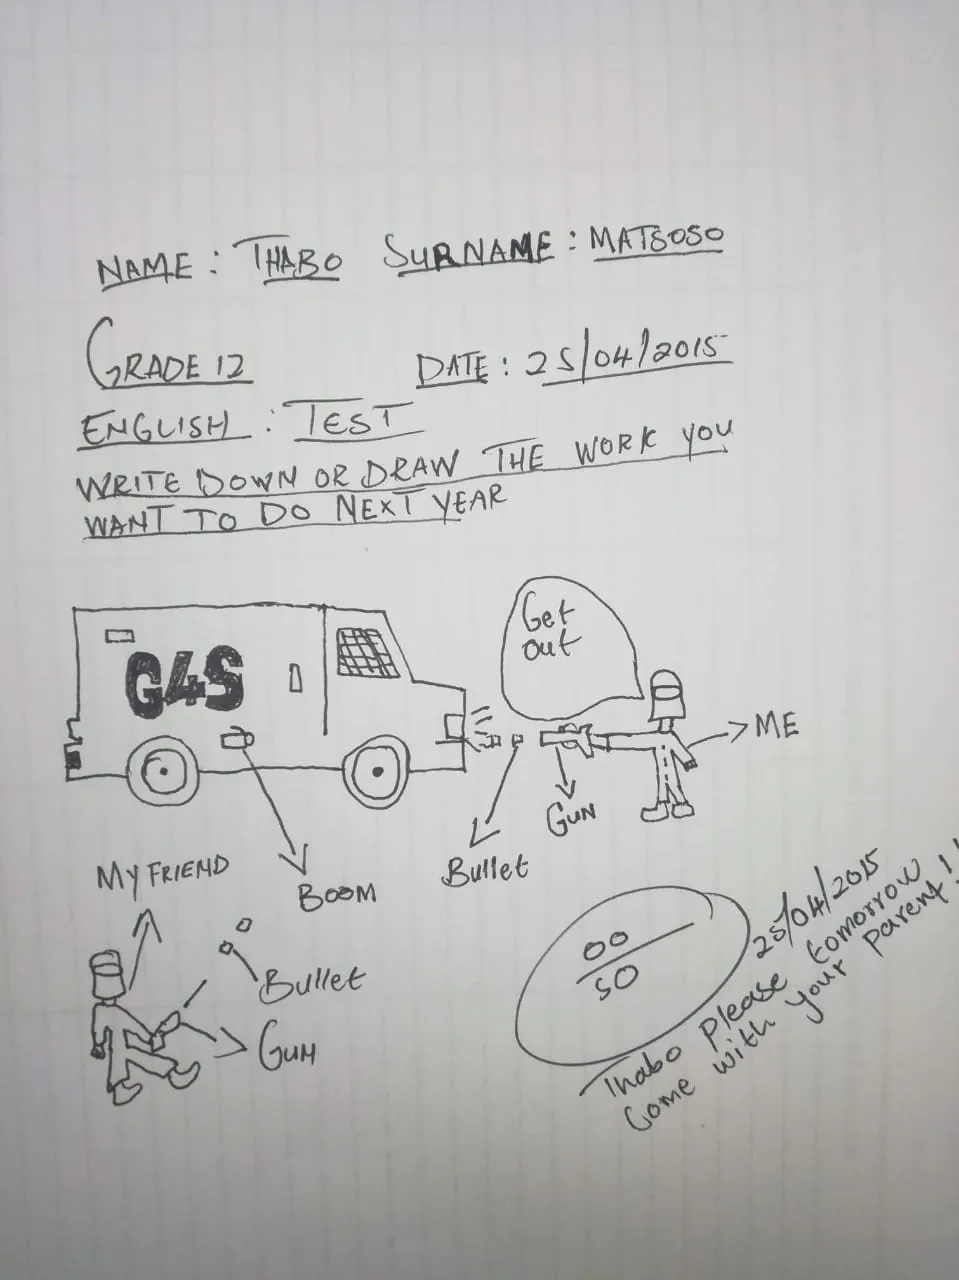 NAME : THABO SURNAME : MATSOSO
GRADE 12 DATE : 25/04/2015
ENGLISH : TEST
WRITE DOWN OR DRAW THE WORK YOU
WANT TO DO NEXT YEAR
Get
out
G4S
ME
GUN
Bullet
BOOM
MY FRIEND
Bullet
GUN
00
50
25/04/2015
Thabo Please tomorrow
Come with your parent!!